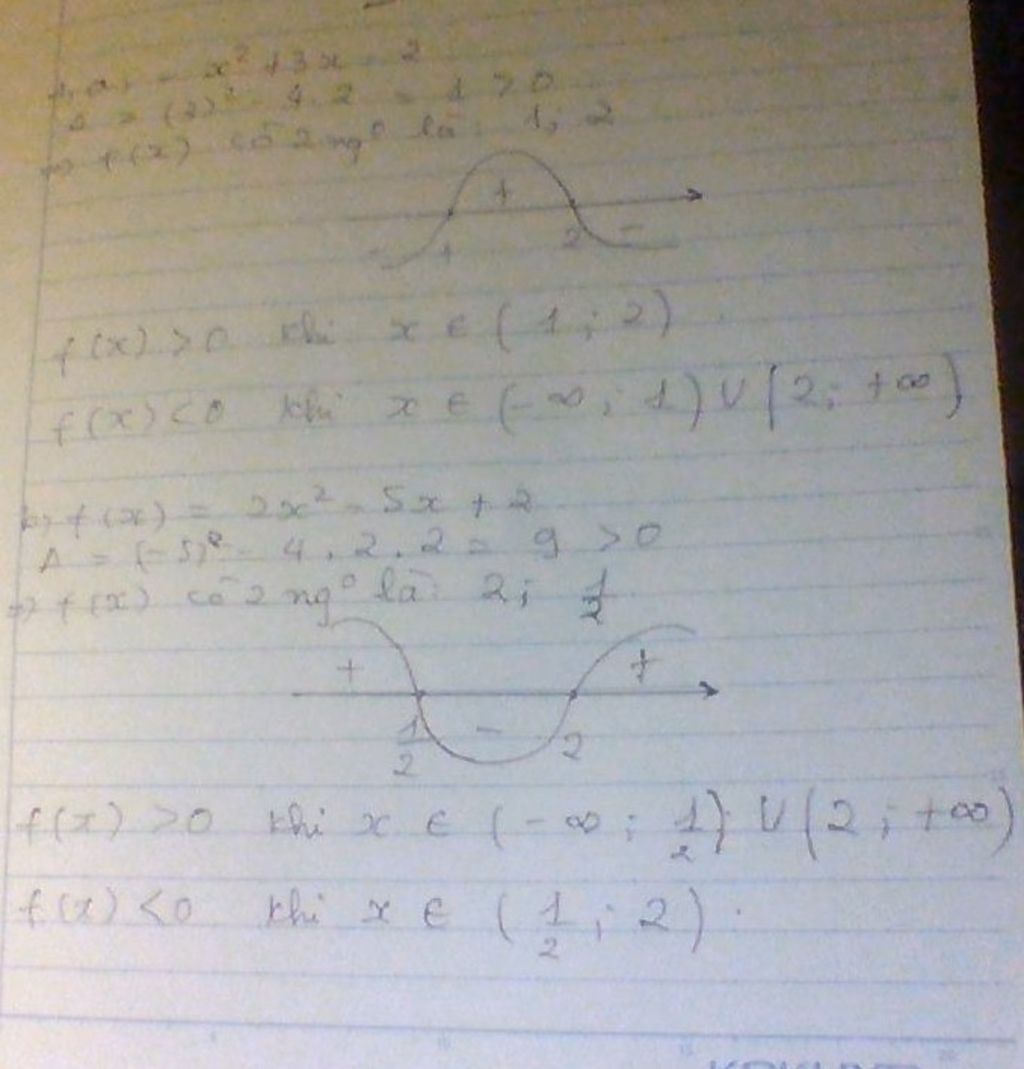 1, a, - x² + 3x - 2
Δ = (3)² - 4.2 = 1 > 0
=> f(x) có 2 ngº là: 1; 2
+
- 1 2 -
f(x) > 0 khi x ∈ (1; 2).
f(x) < 0 khi x ∈ (-∞; 1) ∪ (2; +∞)
b, f(x) = 2x² - 5x + 2
Δ = (-5)² - 4.2.2 = 9 > 0
=> f(x) có 2 ngº là: 2; 1/2
+ +
1/2 - 2
f(x) > 0 khi x ∈ (-∞; 1/2) ∪ (2; +∞)
f(x) < 0 khi x ∈ (1/2; 2).